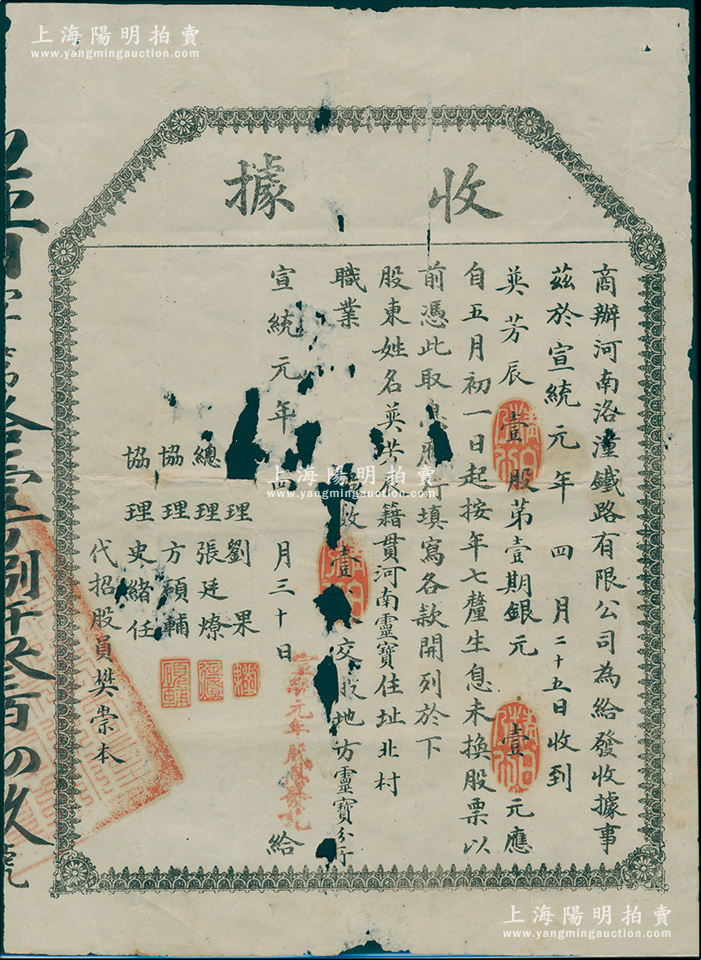 上海陽明拍賣
www.yangmingauction.com
收據
商辦河南洛潼鐵路有限公司為給發收據事
茲於宣統元年四月二十五日收到
英芳辰壹股第壹期銀元壹元應
自五月初一日起按年七釐生息未換股票以
前憑此取息應行填寫各款開列於下
股東姓名英芳辰籍貫河南靈寶住址北村
職業 股數壹 交股地方靈寶分行
宣統元年四月三十日給
總理劉果
總理張廷燎
協理方碩輔
協理史緒任
代招股員樊崇本
上海陽明拍賣
www.yangmingauction.com
上海陽明拍賣
www.yangmingauction.com